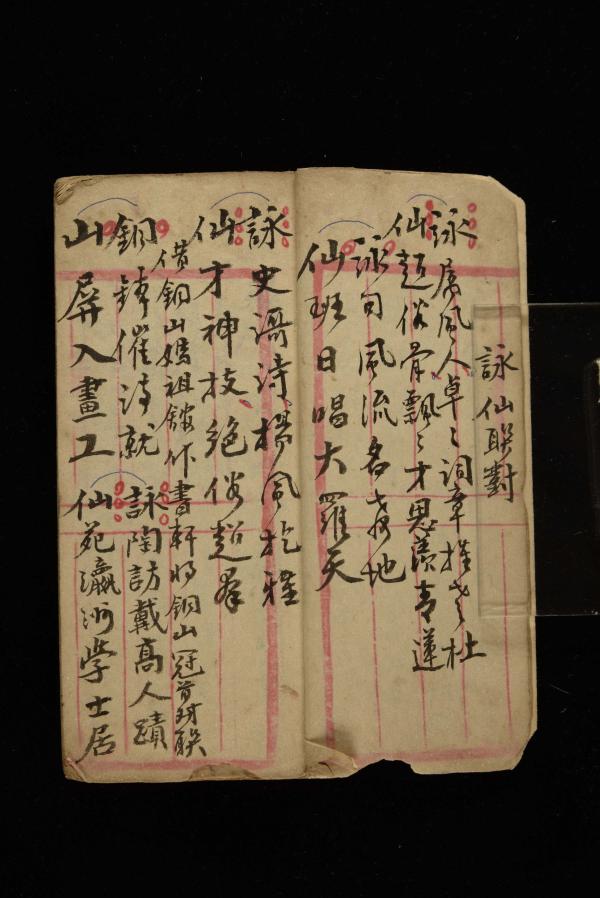 詠仙聯對
詠屬風人卓々詞章推老杜
仙超俗骨飄々才思羨青蓮
詠句風流名教地
仙班日唱大羅天
詠史謌詩揚風扢雅
仙才神技絕俗超羣
借銅山媽祖館作書軒將銅山冠首對聯
銅鉢催詩就
山屏入畫工
詠陶訪戴高人蹟
仙苑瀛洲學士居